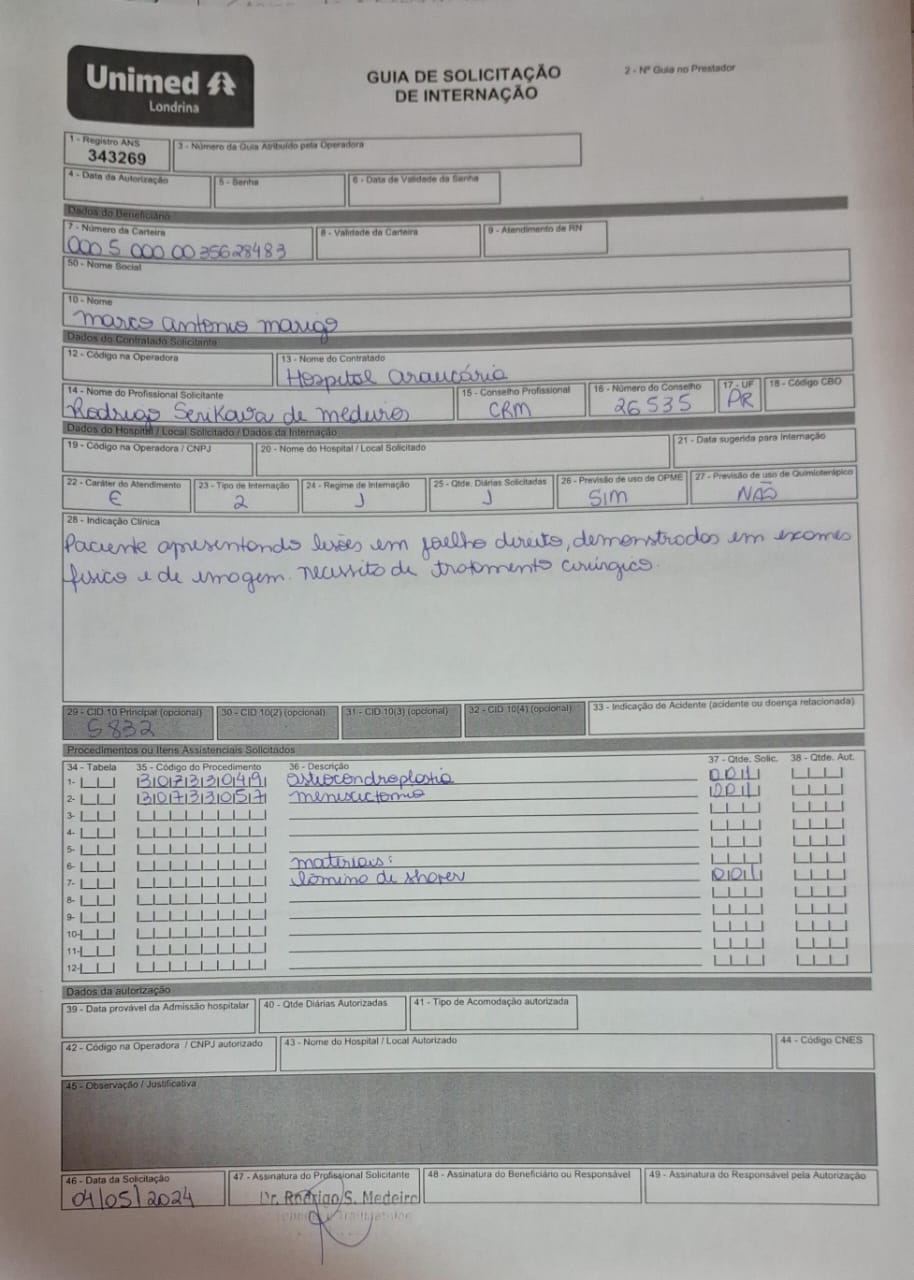 Unimed
Londrina
GUIA DE SOLICITAÇÃO
DE INTERNAÇÃO
2 - Nº Guia no Prestador
1 - Registro ANS
343269
3 - Número da Guia Atribuído pela Operadora
4 - Data da Autorização
5 - Senha
6 - Data de Validade da Senha
Dados do Beneficiário
7 - Número da Carteira
000 5 000 00 35628483
8 - Validade da Carteira
9 - Atendimento de RN
50 - Nome Social
10 - Nome
marco antonio marigo
Dados do Contratado Solicitante
12 - Código na Operadora
13 - Nome do Contratado
Hospital araucária
14 - Nome do Profissional Solicitante
Rodrigo Serikava de medeiros
15 - Conselho Profissional
CRM
16 - Número do Conselho
26535
17 - UF
PR
18 - Código CBO
Dados do Hospital / Local Solicitado / Dados da Internação
19 - Código na Operadora / CNPJ
20 - Nome do Hospital / Local Solicitado
21 - Data sugerida para Internação
22 - Caráter do Atendimento
E
23 - Tipo de Internação
2
24 - Regime de Internação
1
25 - Qtde. Diárias Solicitadas
1
26 - Previsão de uso de OPME
SIM
27 - Previsão de uso de Quimioterápico
NÃO
28 - Indicação Clínica
Paciente apresentando lesões em joelho direito, demonstrados em exames
físico e de imagem. necessita de tratamento cirúrgico.
29 - CID 10 Principal (opcional)
S832
30 - CID 10(2) (opcional)
31 - CID 10(3) (opcional)
32 - CID 10(4) (opcional)
33 - Indicação de Acidente (acidente ou doença relacionada)
Procedimentos ou Itens Assistenciais Solicitados
34 - Tabela 35 - Código do Procedimento 36 - Descrição 37 - Qtde. Solic. 38 - Qtde. Aut.
1- 30733049 osteocondroplastia 001
2- 30733057 meniscectomia 001
3-
4-
5-
6- materiais:
7- lâmina de shaver 001
8-
9-
10-
11-
12-
Dados da autorização
39 - Data provável da Admissão hospitalar
40 - Qtde Diárias Autorizadas
41 - Tipo de Acomodação autorizada
42 - Código na Operadora / CNPJ autorizado
43 - Nome do Hospital / Local Autorizado
44 - Código CNES
45 - Observação / Justificativa
46 - Data da Solicitação
04/05/2024
47 - Assinatura do Profissional Solicitante
Dr. Rodrigo S. Medeiro
48 - Assinatura do Beneficiário ou Responsável
49 - Assinatura do Responsável pela Autorização